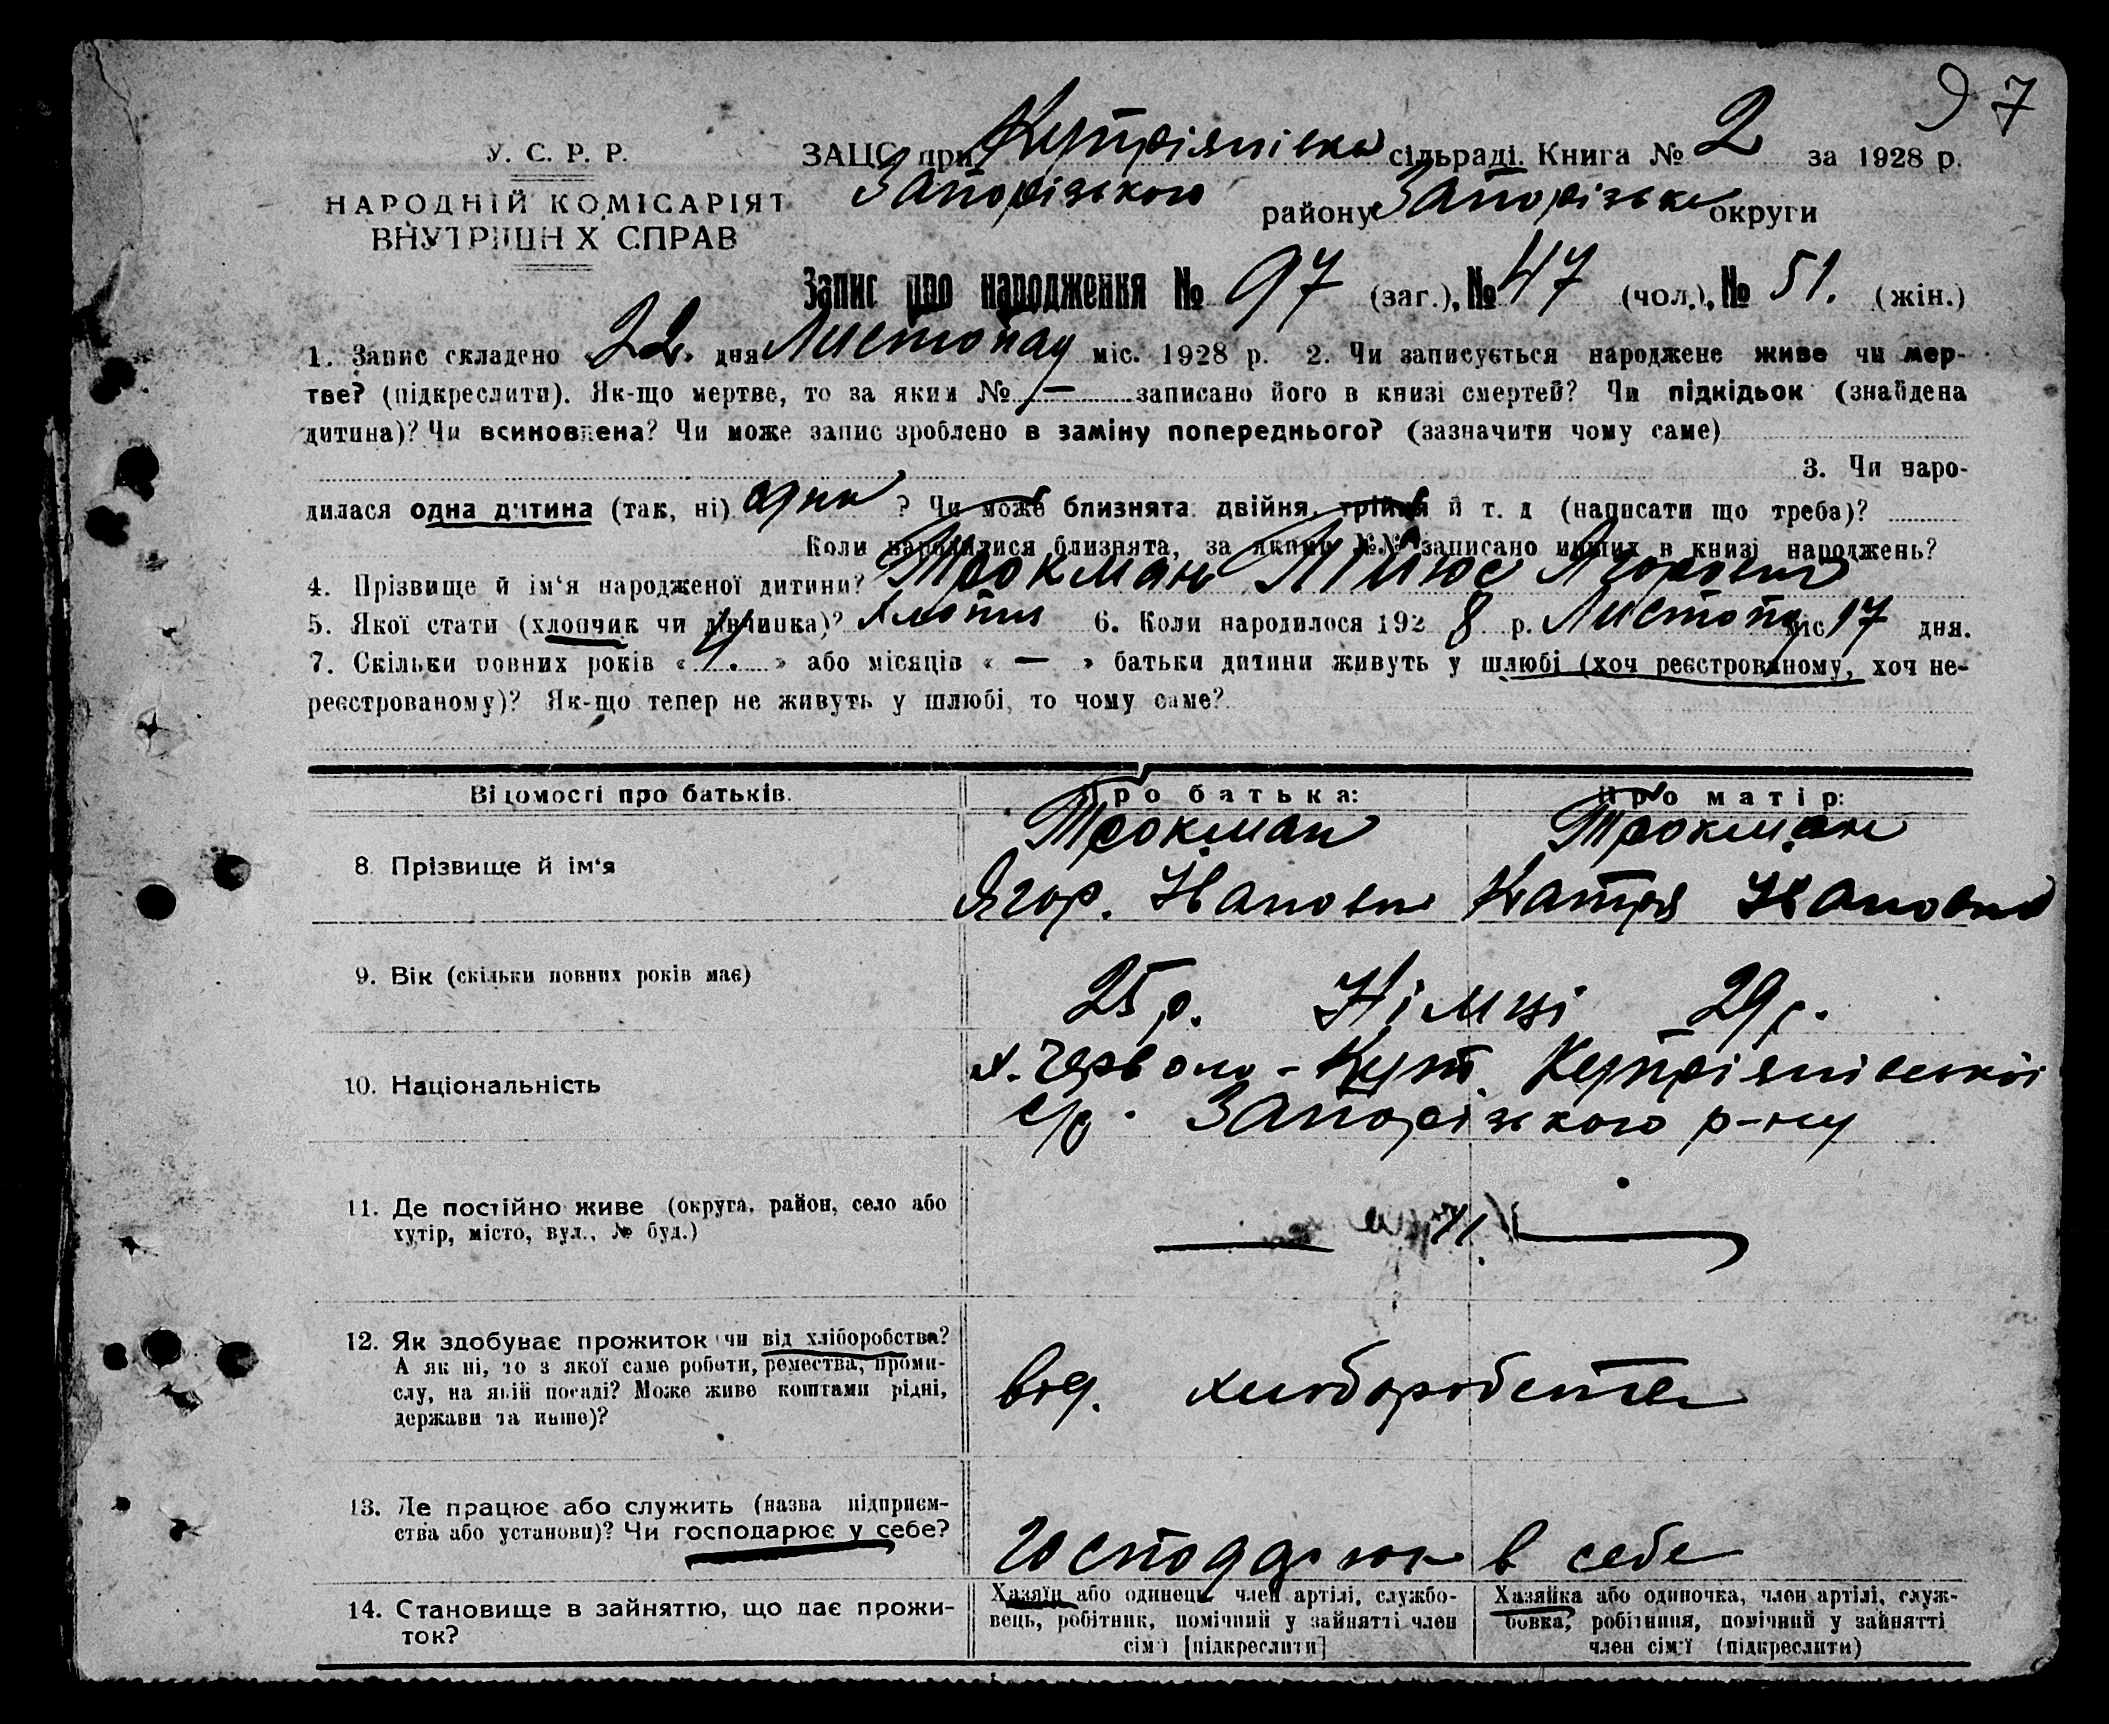 97
У. С. Р. Р.
НАРОДНІЙ КОМІСАРІЯТ
ВНУТРІШНІХ СПРАВ
ЗАЦС при Купріянівка сільраді. Книга № 2 за 1928 р.
Запорізького району Запорізька округи
Запис про народження № 97 (заг.), № 47 (чол.), № 51. (жін.)
1. Запис складено «22» дня Листопад міс. 1928 р. 2. Чи записується народжене живе чи мер-
тве? (підкреслити). Як-що мертве, то за яким № — записано його в книзі смертей? Чи підкідьок (знайдена
дитина)? Чи всиновлена? Чи може запис зроблено в заміну попереднього? (зазначити чому саме)
3. Чи наро-
дилася одна дитина (так, ні) одна ? Чи може близнята: двійня, трійня й т. д (написати що треба)?
Коли народилися близнята, за якими №№ записано инших в книзі народжень?
4. Прізвище й ім'я народженої дитини? Трокман Пілюс Ягорович
5. Якої стати (хлопчик чи дівчинка)? хлопчик 6. Коли народилося 1928 р. Листопад міс 17 дня.
7. Скільки повних років «4.» або місяців « — » батьки дитини живуть у шлюбі (хоч реєстрованому, хоч не-
реєстрованому)? Як-що тепер не живуть у шлюбі, то чому саме?
Відомості про батьків. Про батька: Про матір:
8. Прізвище й ім'я
Трокман Трокман
Ягор. Іванович Катря Івановна
9. Вік (скільки повних років має)
25 р. Німці 29 р.
10. Національність
х. Червоно-Кут Купріянівської
с/р. Запорізького р-ну
11. Де постійно живе (округа, район, село або
хутір, місто, вул., № буд.)
12. Як здобуває прожиток чи від хліборобства?
А як ні, то з якої саме роботи, ремества, проми-
слу, на якій посаді? Може живе коштами рідні,
держави та инше)?
від. хліборобства
13. Де працює або служить (назва підприєм-
ства або установи)? Чи господарює у себе?
Господарює в себе
14. Становище в зайняттю, що дає прожи-
ток?
Хазяїн або одинець, член артілі, службо-
вець, робітник, помічний у зайнятті член
сім'ї [підкреслити]
Хазяйка або одиночка, член артілі, служ-
бовка, робітниця, помічний у зайнятті
член сім'ї (підкреслити)